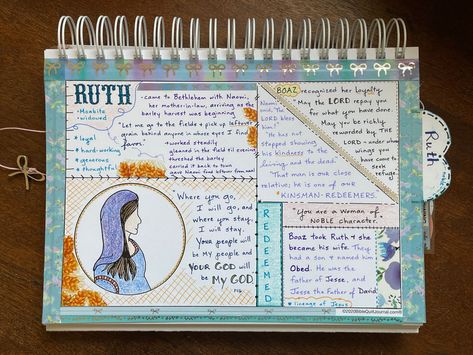 RUTH
•Moabite
•widowed
* loyal
* hard-working
* generous
* thoughtful
- came to Bethlehem with Naomi,
her mother-in-law, arriving as the
barley harvest was beginning
"Let me go to the fields & pick up leftover
grain behind anyone in whose eyes I find
favor."
• worked steadily
gleaned in the field til evening
threshed the barley
carried it back to town
gave Naomi food leftover from meal
"Where you go,
I will go, and
where you stay,
I will stay.
Your people will
be my people and
YOUR GOD will
be MY GOD."
1:16
BOAZ recognized her loyalty
"May the LORD repay you
for what you have done.
May you be richly
rewarded by THE
LORD - under whose
wings you
have come to
seek
refuge."
Naomi:
"The
LORD bless
him!"
"He has not
stopped showing
his kindness to the
living, and the dead."
"That man is our close
relative; he is one of our
KINSMAN-REDEEMERS."
REDEEMED
"You are a woman of
NOBLE character."
Boaz took Ruth & she
became his wife. They
had a son & named him
Obed. He was the
father of Jesse, and
Jesse the Father of David.
* lineage of Jesus
©2020BibleQuiltJournal.com®
Ruth